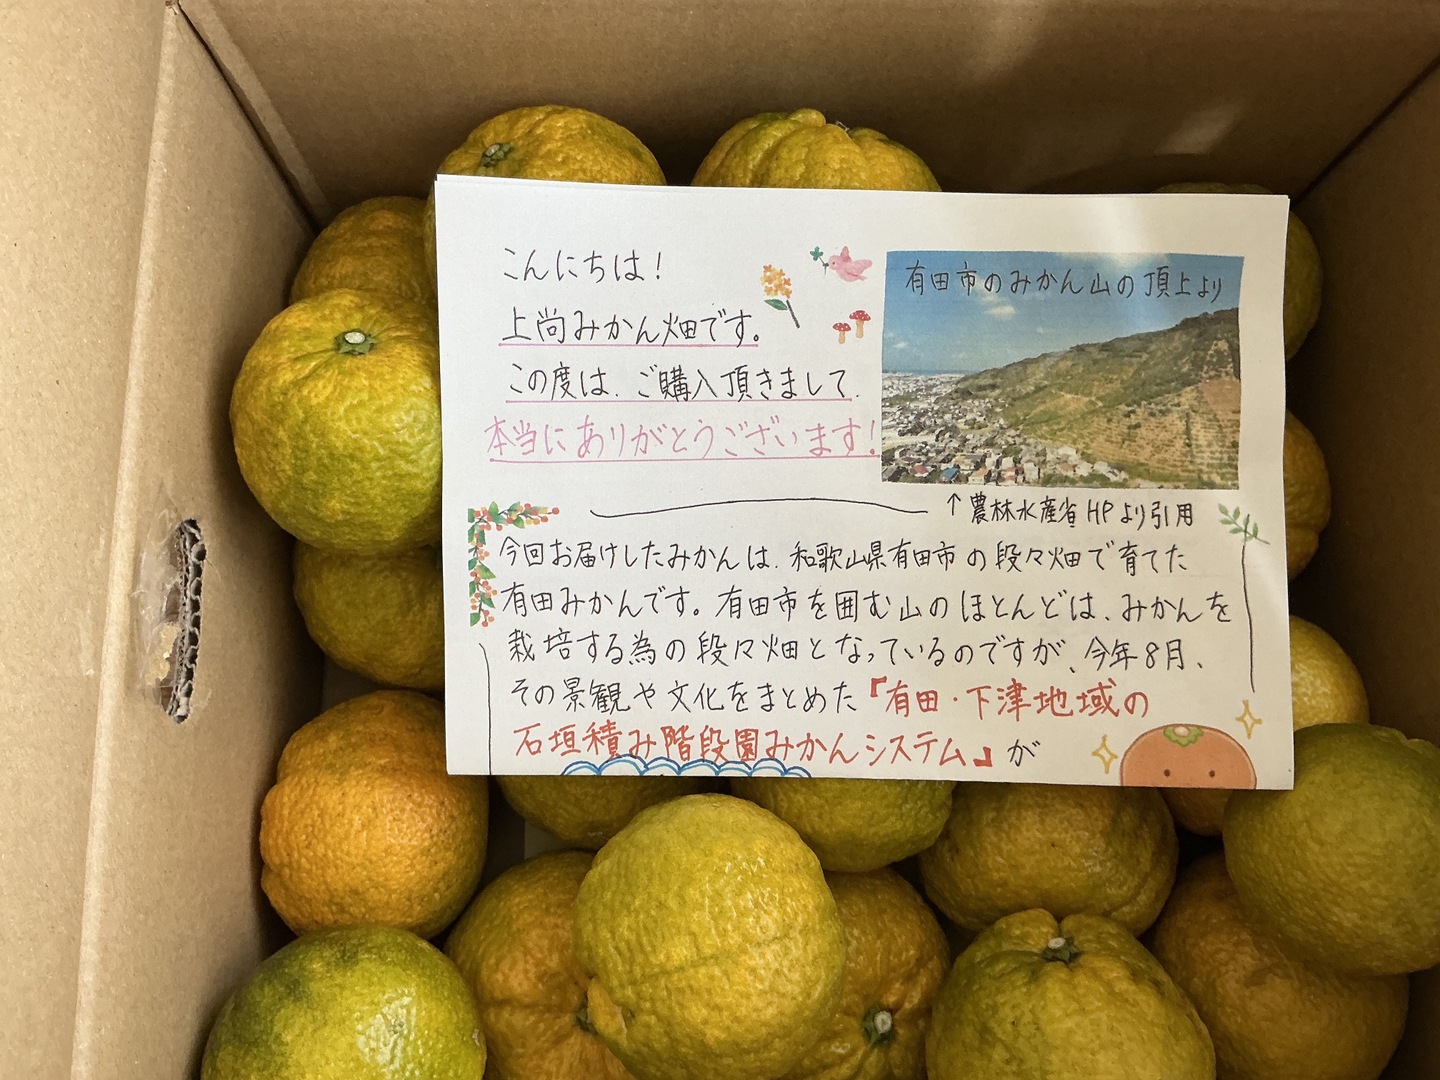 こんにちは!
上尚みかん畑です。
この度は、ご購入頂きまして、
本当にありがとうございます!
有田市のみかん山の頂上より
↑農林水産省HPより引用
今回お届けしたみかんは、和歌山県有田市の段々畑で育てた
有田みかんです。有田市を囲む山のほとんどは、みかんを
栽培する為の段々畑となっているのですが、今年8月、
その景観や文化をまとめた『有田・下津地域の
石垣積み階段園みかんシステム』が